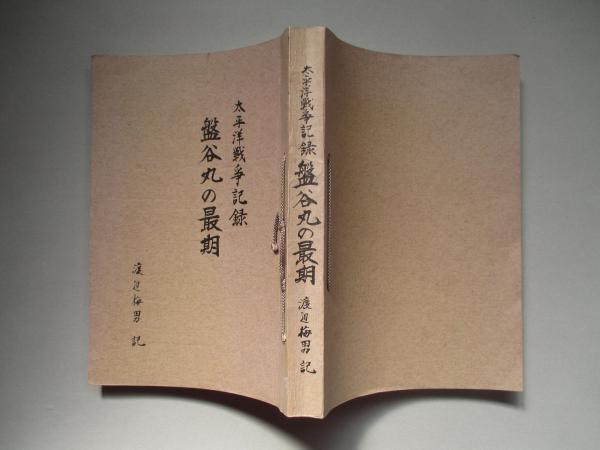 太平洋戦争記録
盤谷丸の最期
渡辺梅男 記
太平洋戦争記録 盤谷丸の最期 渡辺梅男 記